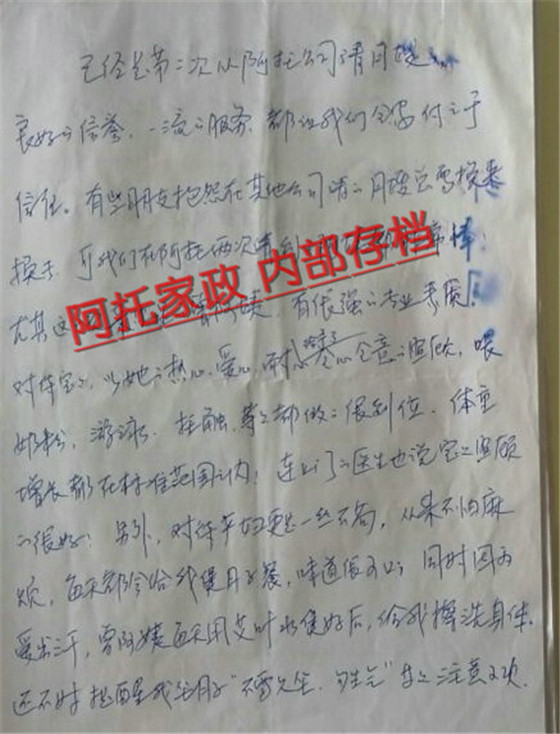 已经是第二次从阿托公司请月嫂,
良好的信誉,一流的服务,都让我们全家付之于
信任。有些朋友抱怨在其他公司请的月嫂总需换来
换去,可我们在阿托两次请到的 都非常棒!
尤其这 阿姨,有很强的专业素质,
对待宝宝,以她的热心、爱心、耐心 全心全意的照顾,喂
奶粉,游泳,抚触,等等都做的很到位,体重
增长都在标准范围之内!连上门的医生也说宝宝照顾
的很好!另外,对待孕妇更是一丝不苟,从来不怕麻
烦,每天都会给我煲月子餐,味道很可口,同时因为
爱出汗,曾阿姨每天用艾叶水煲好后,给我擦洗身体.
还不时提醒我坐月子"不需久坐, 生气"等注意事项.
阿托家政 内部存档